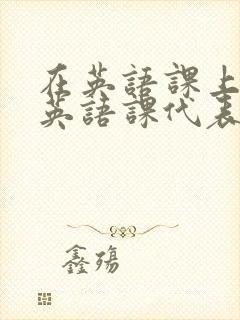 在英語課上
英語課代表
鑫殤